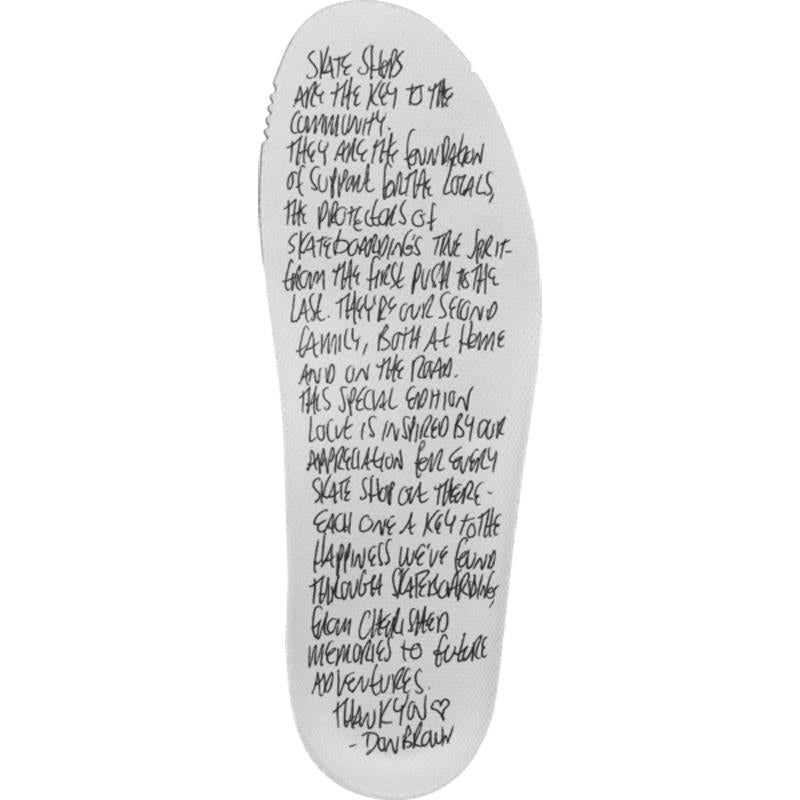 SKATE SHOPS
ARE THE KEY TO THE
COMMUNITY.
THEY ARE THE FOUNDATION
OF SUPPORT FOR THE LOCALS,
THE PROTECTORS OF
SKATEBOARDING'S TRUE SPIRIT-
FROM THE FIRST PUSH TO THE
LAST. THEY'RE OUR SECOND
FAMILY, BOTH At Home
AND ON THE ROAD.
THIS SPECIAL EDITION
LOCUT IS INSPIRED BY OUR
APPRECIATION FOR EVERY
SKATE SHOP OUT THERE-
EACH ONE A KEY TO THE
HAPPINESS WE'VE FOUND
THROUGH SKATEBOARDING,
FROM CHERISHED
MEMORIES TO FUTURE
ADVENTURES.
THANK YOU ♡
- DON BROWN